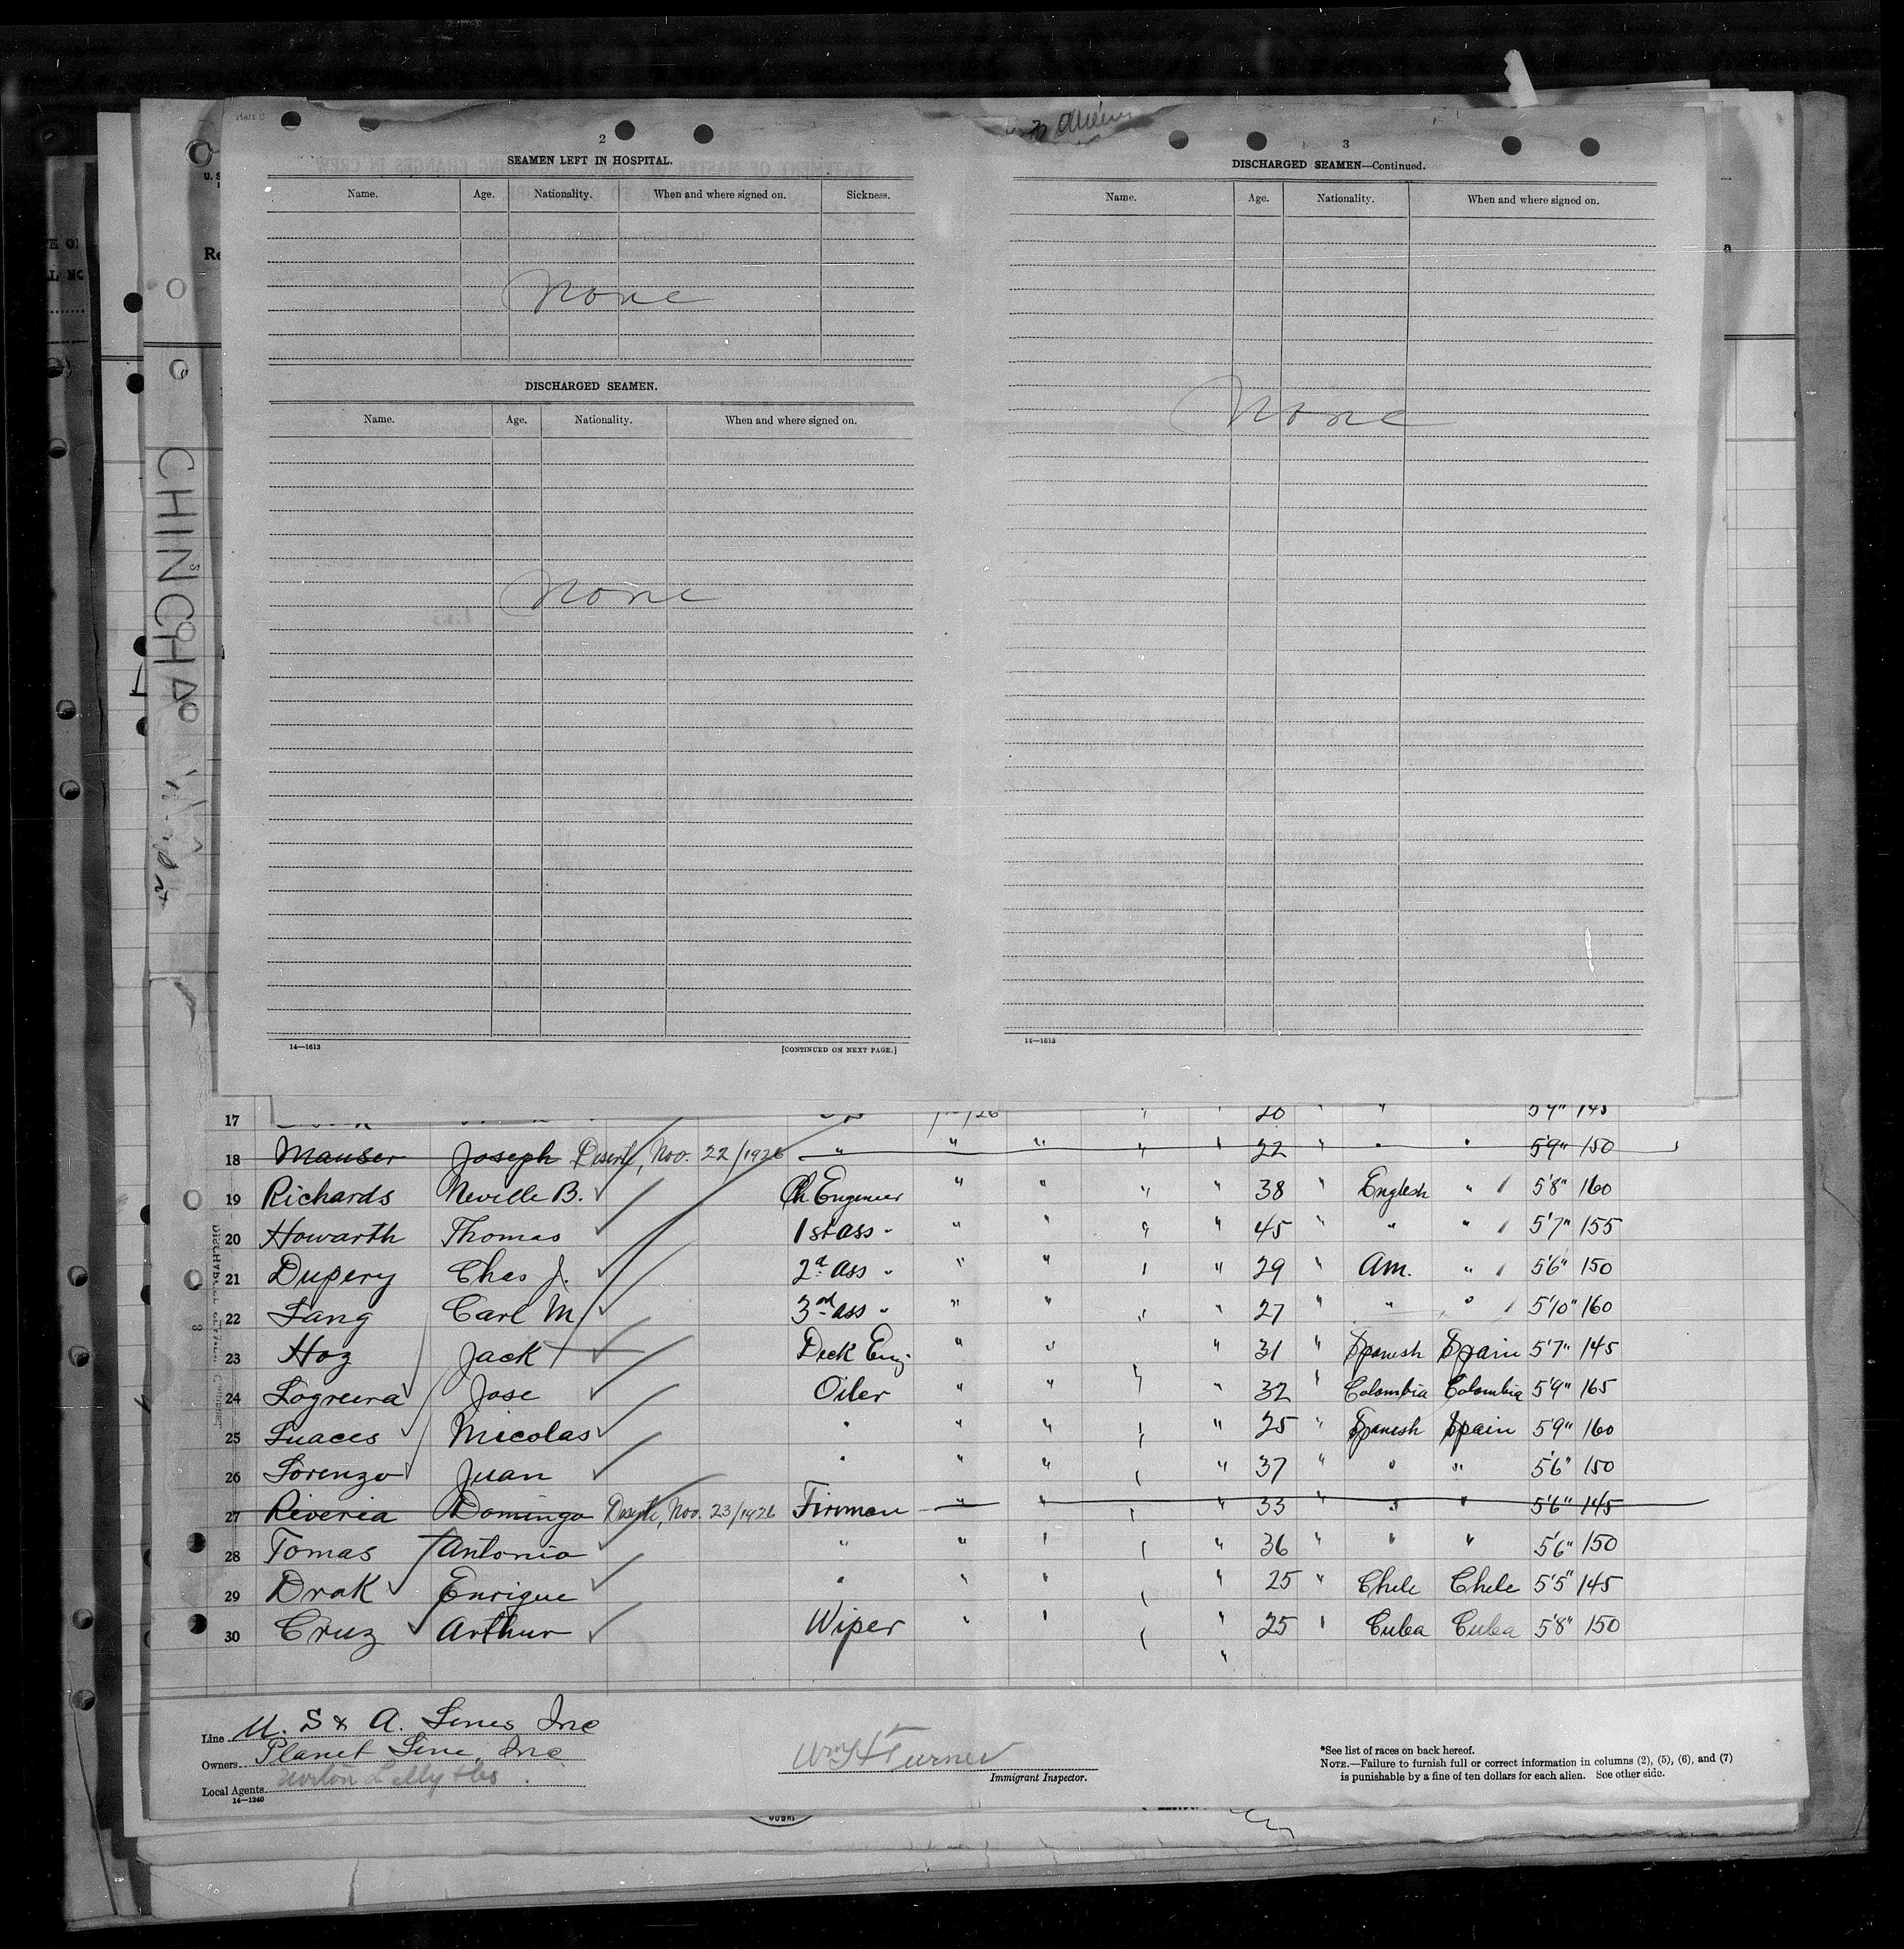 2
SEAMEN LEFT IN HOSPITAL.
Name. Age. Nationality. When and where signed on. Sickness.
None
DISCHARGED SEAMEN.
Name. Age. Nationality. When and where signed on.
None
14—1613 [CONTINUED ON NEXT PAGE.]
3
DISCHARGED SEAMEN—Continued.
Name. Age. Nationality. When and where signed on.
None
14—1613
CHINCHA
17 20 " " 5'9" 145
18 Mauser Joseph Deserted, Nov. 22/1926 " " " " " 22 " " " 5'9" 150
19 Richards Neville B. Ch Engeneer " " " " 38 " English " 5'8" 160
20 Howarth Thomas 1st ass " " " " " 45 " " " 5'7" 155
21 Dupery Chas J. 2d ass " " " " " 29 " Am. " 5'6" 150
22 Lang Carl M. 3rd ass " " " " " 27 " " " 5'10" 160
23 Hoz Jack Deck Eng. " " " 31 " Spanish Spain 5'7" 145
24 Logreira Jose Oiler " " " " 32 " Colombia Colombia 5'9" 165
25 Luaces Nicolas " " " " " 25 " Spanish Spain 5'9" 160
26 Lorenzo Juan " " " " " 37 " " " 5'6" 150
27 Riveria Domingo Nov. 23/1926 Fireman " " " " 33 " " " 5'6" 145
28 Tomas Antonio " " " " " 36 " " " 5'6" 150
29 Drak Enrique " " " " " 25 " Chile Chile 5'5" 145
30 Cruz Arthur Wiper " " " " 25 " Cuba Cuba 5'8" 150
Line U. S & A. Lines Inc
Owners Planet Line, Inc
Local Agents Norton Lilly & Co.
14—1240
Wm H Turner
Immigrant Inspector.
*See list of races on back hereof.
NOTE.—Failure to furnish full or correct information in columns (2), (5), (6), and (7)
is punishable by a fine of ten dollars for each alien. See other side.